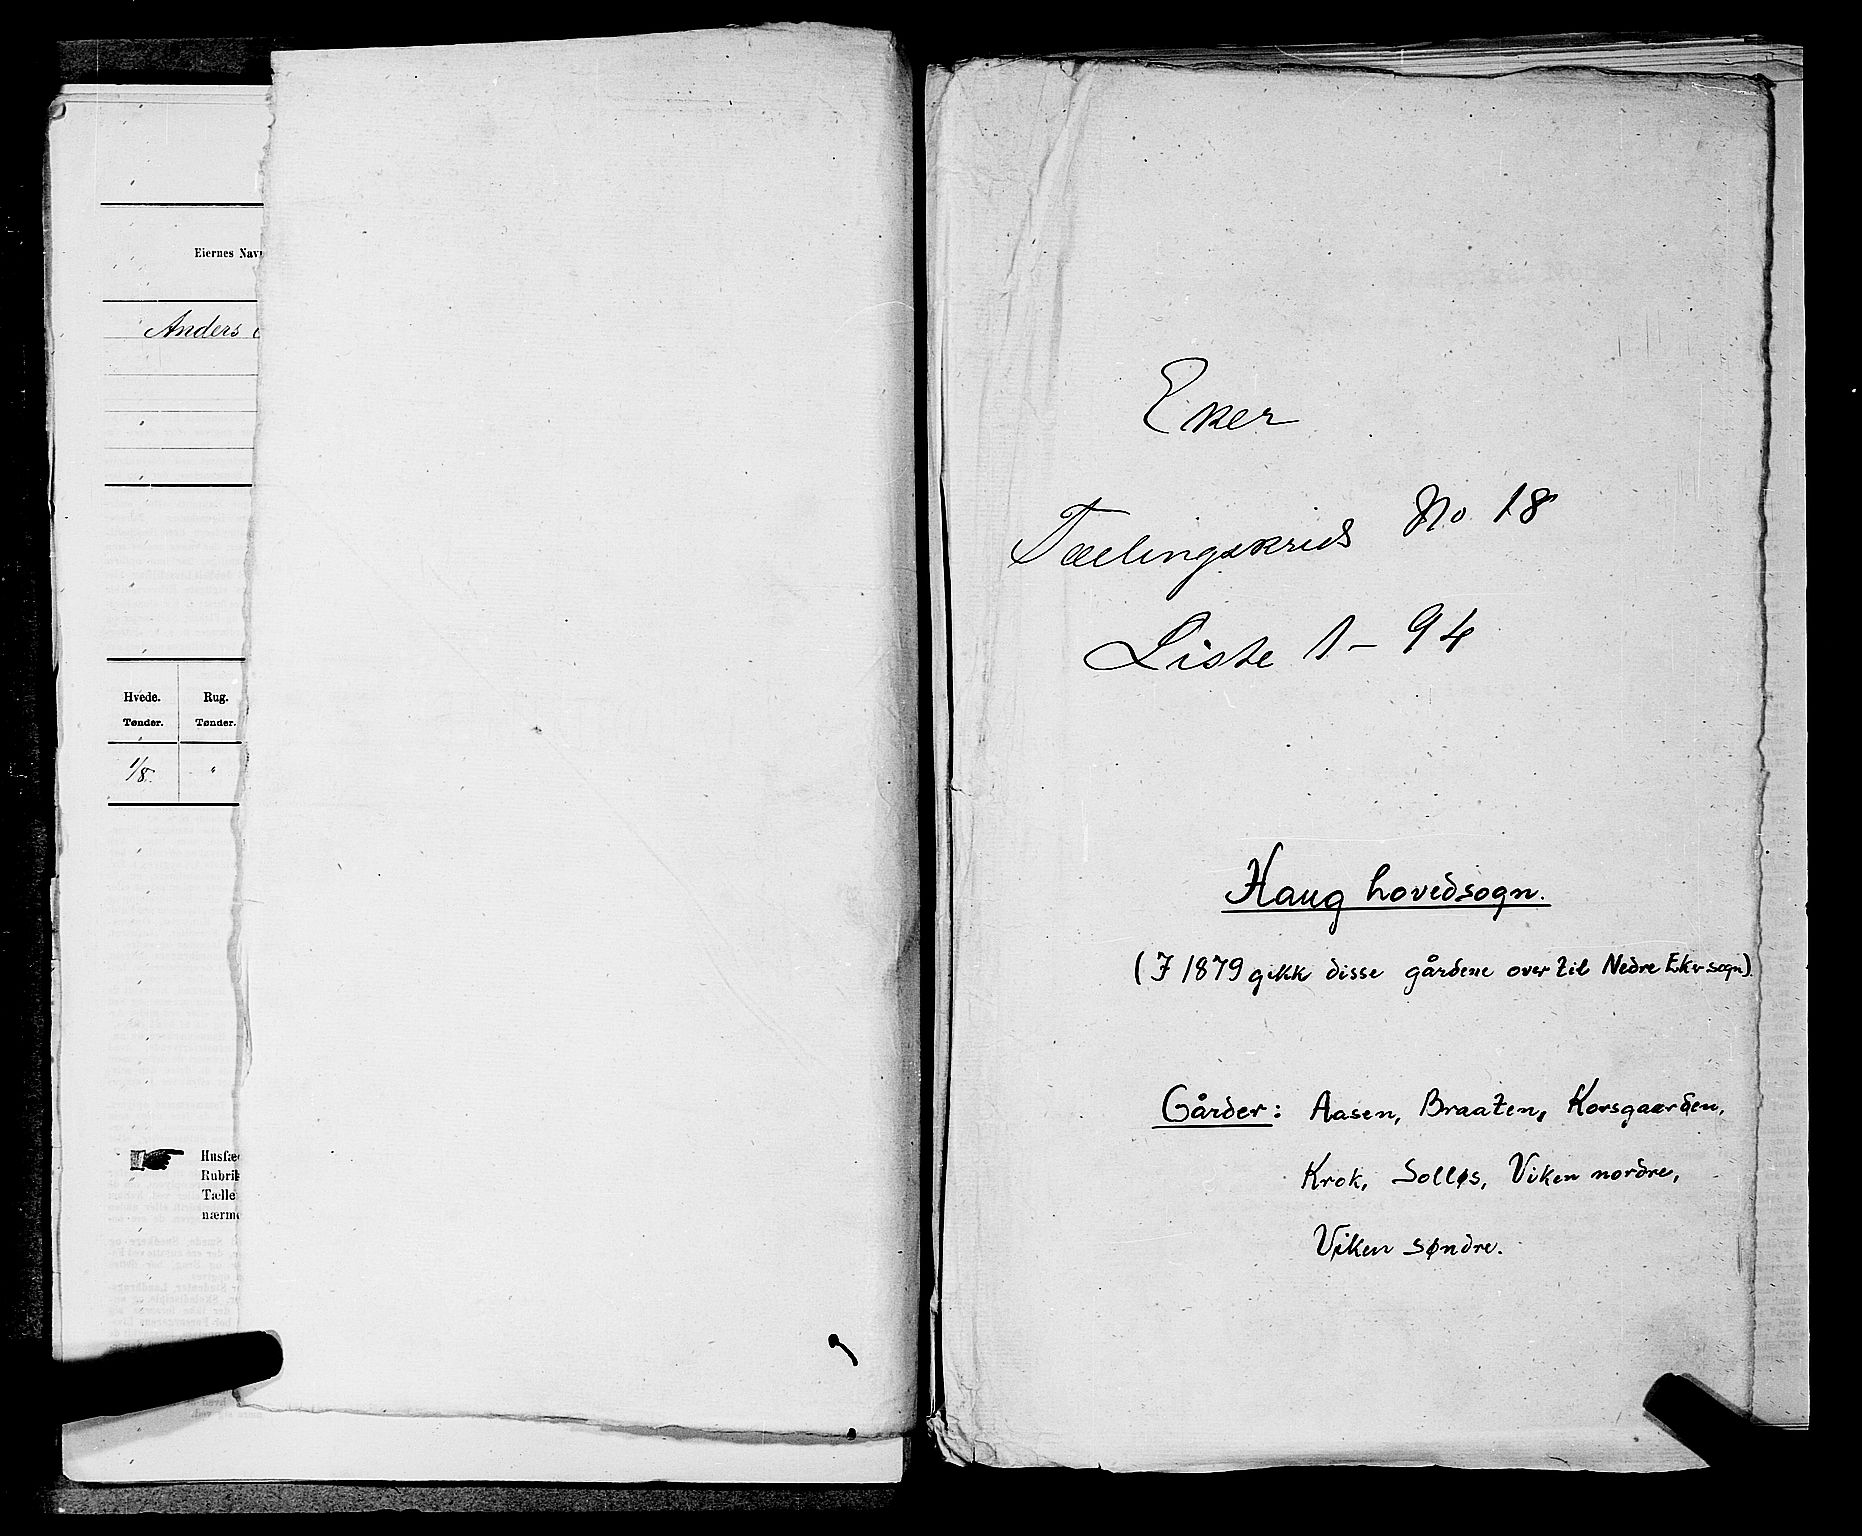 Eiernes Nav
Anders
Hvede.
Tønder.
Rug.
Tønder.
1/8.
"
Husfæ
Rubrik
Tælle
nærme
Eker
Tællingskrids No 18
Liste 1 - 94
Haug hovedsogn.
(I 1879 gikk disse gårdene over til Nedre Eker sogn).
Gårder: Aasen, Braaten, Korsgaarden,
Krok, Solløs, Viken nordre,
Viken søndre.